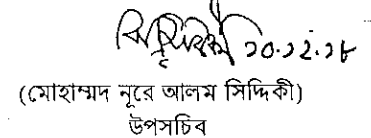 ২০.১২.১৮
(মোহাম্মদ নূরে আলম সিদ্দিকী)
উপসচিব